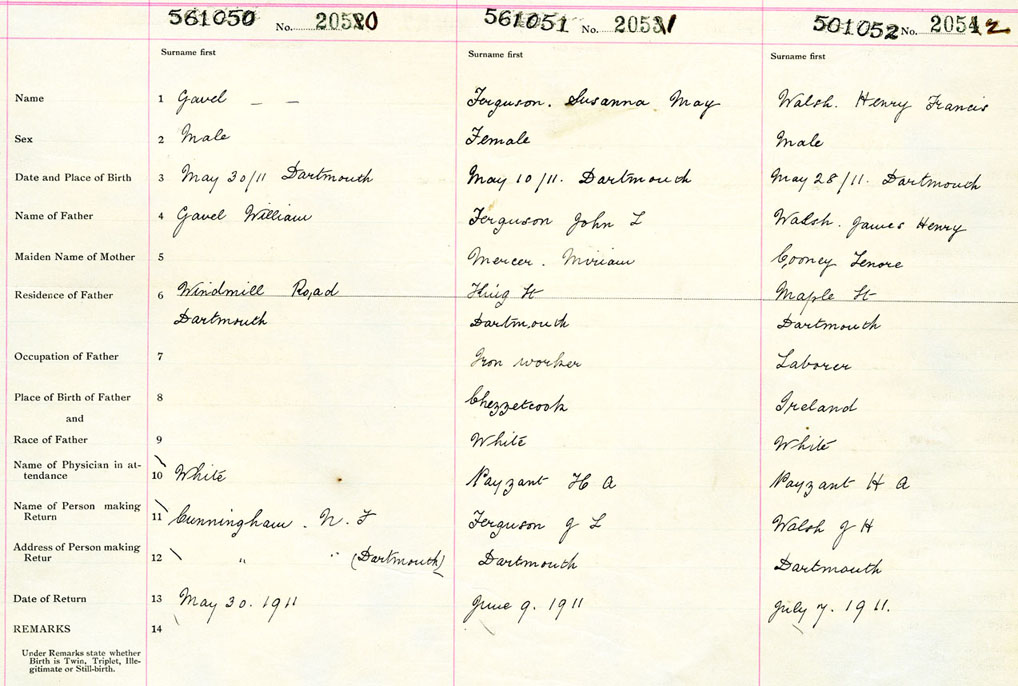 561050 No. 20530
561051 No. 20531
501052 No. 20542
Surname first Surname first Surname first
Name 1 Gavel — — Ferguson. Susanna May Walsh. Henry Francis
Sex 2 Male Female Male
Date and Place of Birth 3 May 30/11 Dartmouth May 10/11. Dartmouth May 28/11. Dartmouth
Name of Father 4 Gavel William Ferguson John L Walsh. James Henry
Maiden Name of Mother 5 Mercer. Miriam Cooney Lenore
Residence of Father 6 Windmill Road King St Maple St
Dartmouth Dartmouth Dartmouth
Occupation of Father 7 Iron worker Laborer
Place of Birth of Father 8 Chezzetcook Ireland
and
Race of Father 9 White White
Name of Physician in at-
tendance 10 White Payzant H A Payzant H A
Name of Person making
Return 11 Cunningham. N. F Ferguson J L Walsh J H
Address of Person making
Retur 12 " " (Dartmouth) Dartmouth Dartmouth
Date of Return 13 May 30. 1911 June 9. 1911 July 7. 1911.
REMARKS 14
Under Remarks state whether
Birth is Twin, Triplet, Ille-
gitimate or Still-birth.